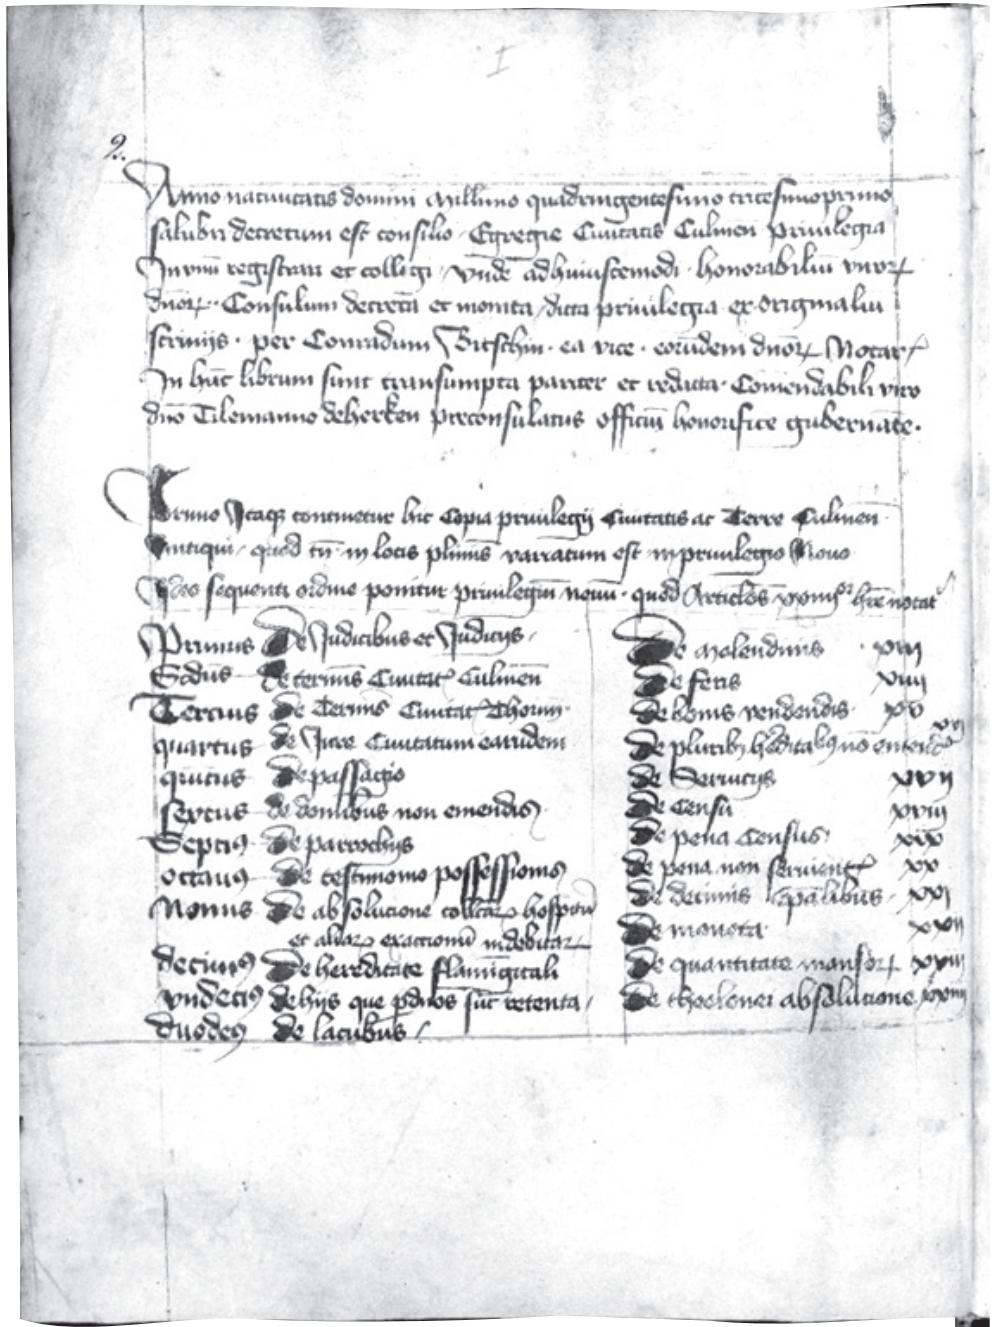 I
2.
Anno natiuitatis domini Millimo quadringentesimo tricesimoprimo
salubri decretum est consilio · Egregie Ciuitatis Culmen Priuilegia
Invnū registrari et colligi · Vnde adhuiuscemodi · honorabiliū viroꝝ
dnōꝝ · Consulum decreta et monita / dicta priuilegia ex originaliū
scrinijs · per Conradum Bitschin · ea vice · eorundem dnōꝝ Notar
In hūc librum sunt transumpta pariter et redacta · Comēdabili viro
dnō Tilemanno deherken Preconsulatus officiū honorifice gubernāte ·
Primo Itaqꝫ continetur hic Copia priuilegij Ciuitatis ac Terre Culmen̄
Antiqui / quod tn̄ in locis plurimis variatum est in priuilegio Nouo
Ideo sequenti ordine ponitur Priuilegiū nouū · quod Articlōs hr̄e notat
Primus De Iudicibus et Iudicijs /
Scdūs De terminis Ciuitat Culmen̄
Tercius De Terminis Ciuitat Thorun̄
quartus de Iure Ciuitatum earūdem
quītus de passagio
sextus de domibus non emendis
Septiꝯ de parrochijs
octauꝯ de testimonio possessionis
Nonus De absolucione collcaꝝ hospitū
et aliaꝝ exactionū indebitaꝝ
decimꝯ De hereditate flamīgicali
Vndeciꝯ dehijs que pdn̄os sūt retenta /
duodeꝯ de lacubus /
De Molendinis xiii
De feris xiiii
De bonis vendendis xv
De pluribꝫ hēditatibꝫ nō emend xvi
de Seruicijs xvii
De Censu xviii
De pena Census xix
de pena non seruient xx
de decimis epālibus xxi
De moneta xxii
De quantitate mansoꝝ xxiii
De theolonei absolucione xxiiii